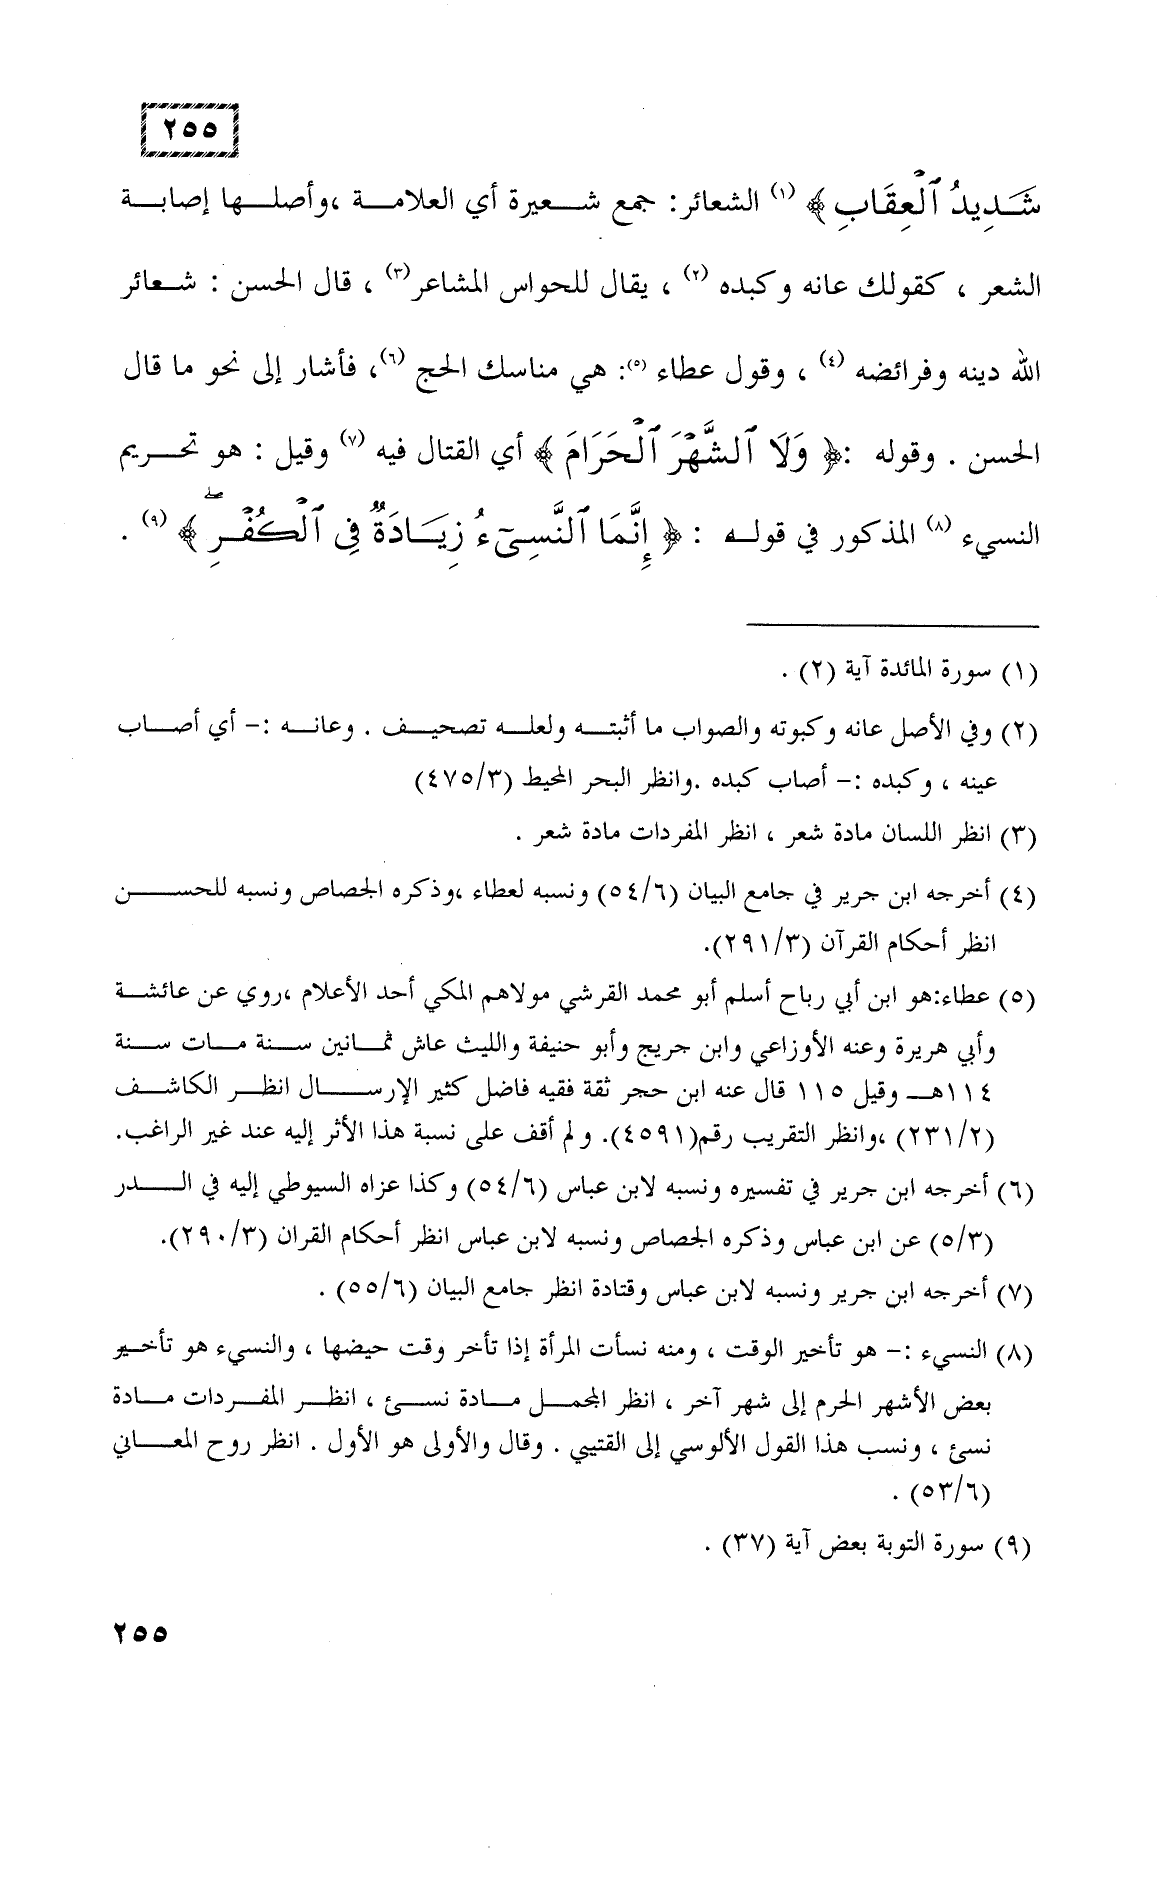 ٢٥٥
شَدِيدُ ٱلْعِقَابِ ﴾ (١) الشعائر: جمع شعيرة أي العلامة ،وأصلها إصابة
الشعر ، كقولك عانه وكبده (٢) ، يقال للحواس المشاعر(٣) ، قال الحسن : شعائر
الله دينه وفرائضه (٤) ، وقول عطاء (٥): هي مناسك الحج (٦)، فأشار إلى نحو ما قال
الحسن . وقوله :﴿ وَلَا ٱلشَّهْرَ ٱلْحَرَامَ ﴾ أي القتال فيه (٧) وقيل : هو تحريم
النسيء (٨) المذكور في قوله : ﴿ إِنَّمَا ٱلنَّسِىٓءُ زِيَادَةٌ فِى ٱلْكُفْرِ ۖ ﴾ (٩) .
(١) سورة المائدة آية (٢) .
(٢) وفي الأصل عانه وكبوته والصواب ما أثبته ولعله تصحيف . وعانه :- أي أصاب
عينه ، وكبده :- أصاب كبده .وانظر البحر المحيط (٤٧٥/٣)
(٣) انظر اللسان مادة شعر ، انظر المفردات مادة شعر .
(٤) أخرجه ابن جرير في جامع البيان (٥٤/٦) ونسبه لعطاء ،وذكره الجصاص ونسبه للحسن
انظر أحكام القرآن (٢٩١/٣).
(٥) عطاء:هو ابن أبي رباح أسلم أبو محمد القرشي مولاهم المكي أحد الأعلام ،روي عن عائشة
وأبي هريرة وعنه الأوزاعي وابن جريج وأبو حنيفة والليث عاش ثمانين سنة مات سنة
١١٤هـ وقيل ١١٥ قال عنه ابن حجر ثقة فقيه فاضل كثير الإرسال انظر الكاشف
(٢٣١/٢) ،وانظر التقريب رقم(٤٥٩١). ولم أقف على نسبة هذا الأثر إليه عند غير الراغب.
(٦) أخرجه ابن جرير في تفسيره ونسبه لابن عباس (٥٤/٦) وكذا عزاه السيوطي إليه في الدر
(٥/٣) عن ابن عباس وذكره الجصاص ونسبه لابن عباس انظر أحكام القران (٢٩٠/٣).
(٧) أخرجه ابن جرير ونسبه لابن عباس وقتادة انظر جامع البيان (٥٥/٦) .
(٨) النسيء :- هو تأخير الوقت ، ومنه نسأت المرأة إذا تأخر وقت حيضها ، والنسيء هو تأخير
بعض الأشهر الحرم إلى شهر آخر ، انظر المجمل مادة نسئ ، انظر المفردات مادة
نسئ ، ونسب هذا القول الألوسي إلى القتيبي . وقال والأولى هو الأول . انظر روح المعاني
(٥٣/٦) .
(٩) سورة التوبة بعض آية (٣٧) .
٢٥٥